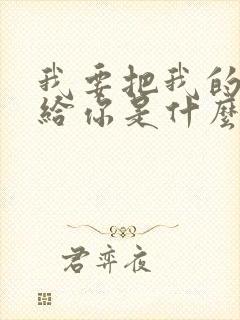 我要把我的
給你是什麼
君弈夜